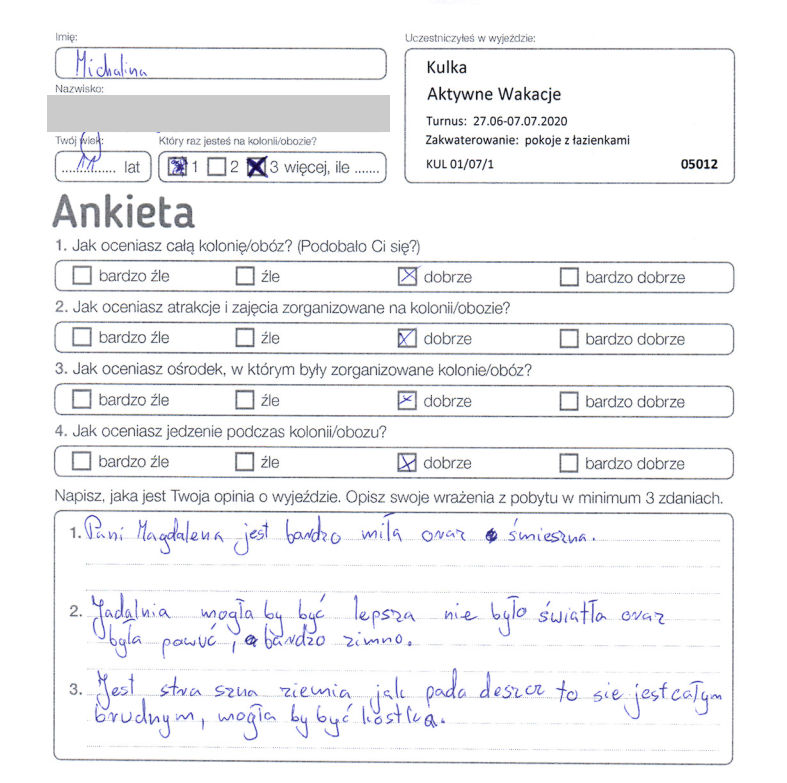 Imię:
Michalina
Nazwisko:
Twój wiek:
11 lat
Który raz jesteś na kolonii/obozie?
1 2 3 więcej, ile .......
Uczestniczyłeś w wyjeździe:
Kulka
Aktywne Wakacje
Turnus: 27.06-07.07.2020
Zakwaterowanie: pokoje z łazienkami
KUL 01/07/1 05012
Ankieta
1. Jak oceniasz całą kolonię/obóz? (Podobało Ci się?)
bardzo źle źle dobrze bardzo dobrze
2. Jak oceniasz atrakcje i zajęcia zorganizowane na kolonii/obozie?
bardzo źle źle dobrze bardzo dobrze
3. Jak oceniasz ośrodek, w którym były zorganizowane kolonie/obóz?
bardzo źle źle dobrze bardzo dobrze
4. Jak oceniasz jedzenie podczas kolonii/obozu?
bardzo źle źle dobrze bardzo dobrze
Napisz, jaka jest Twoja opinia o wyjeździe. Opisz swoje wrażenia z pobytu w minimum 3 zdaniach.
1. Pani Magdalena jest bardzo miła oraz śmieszna.
2. Jadalnia mogła by być lepsza nie było światła oraz
była powuć, bardzo zimno.
3. Jest stra szna ziemia jak pada deszcz to sie jest całym
brudnym, mogła by być kostka.